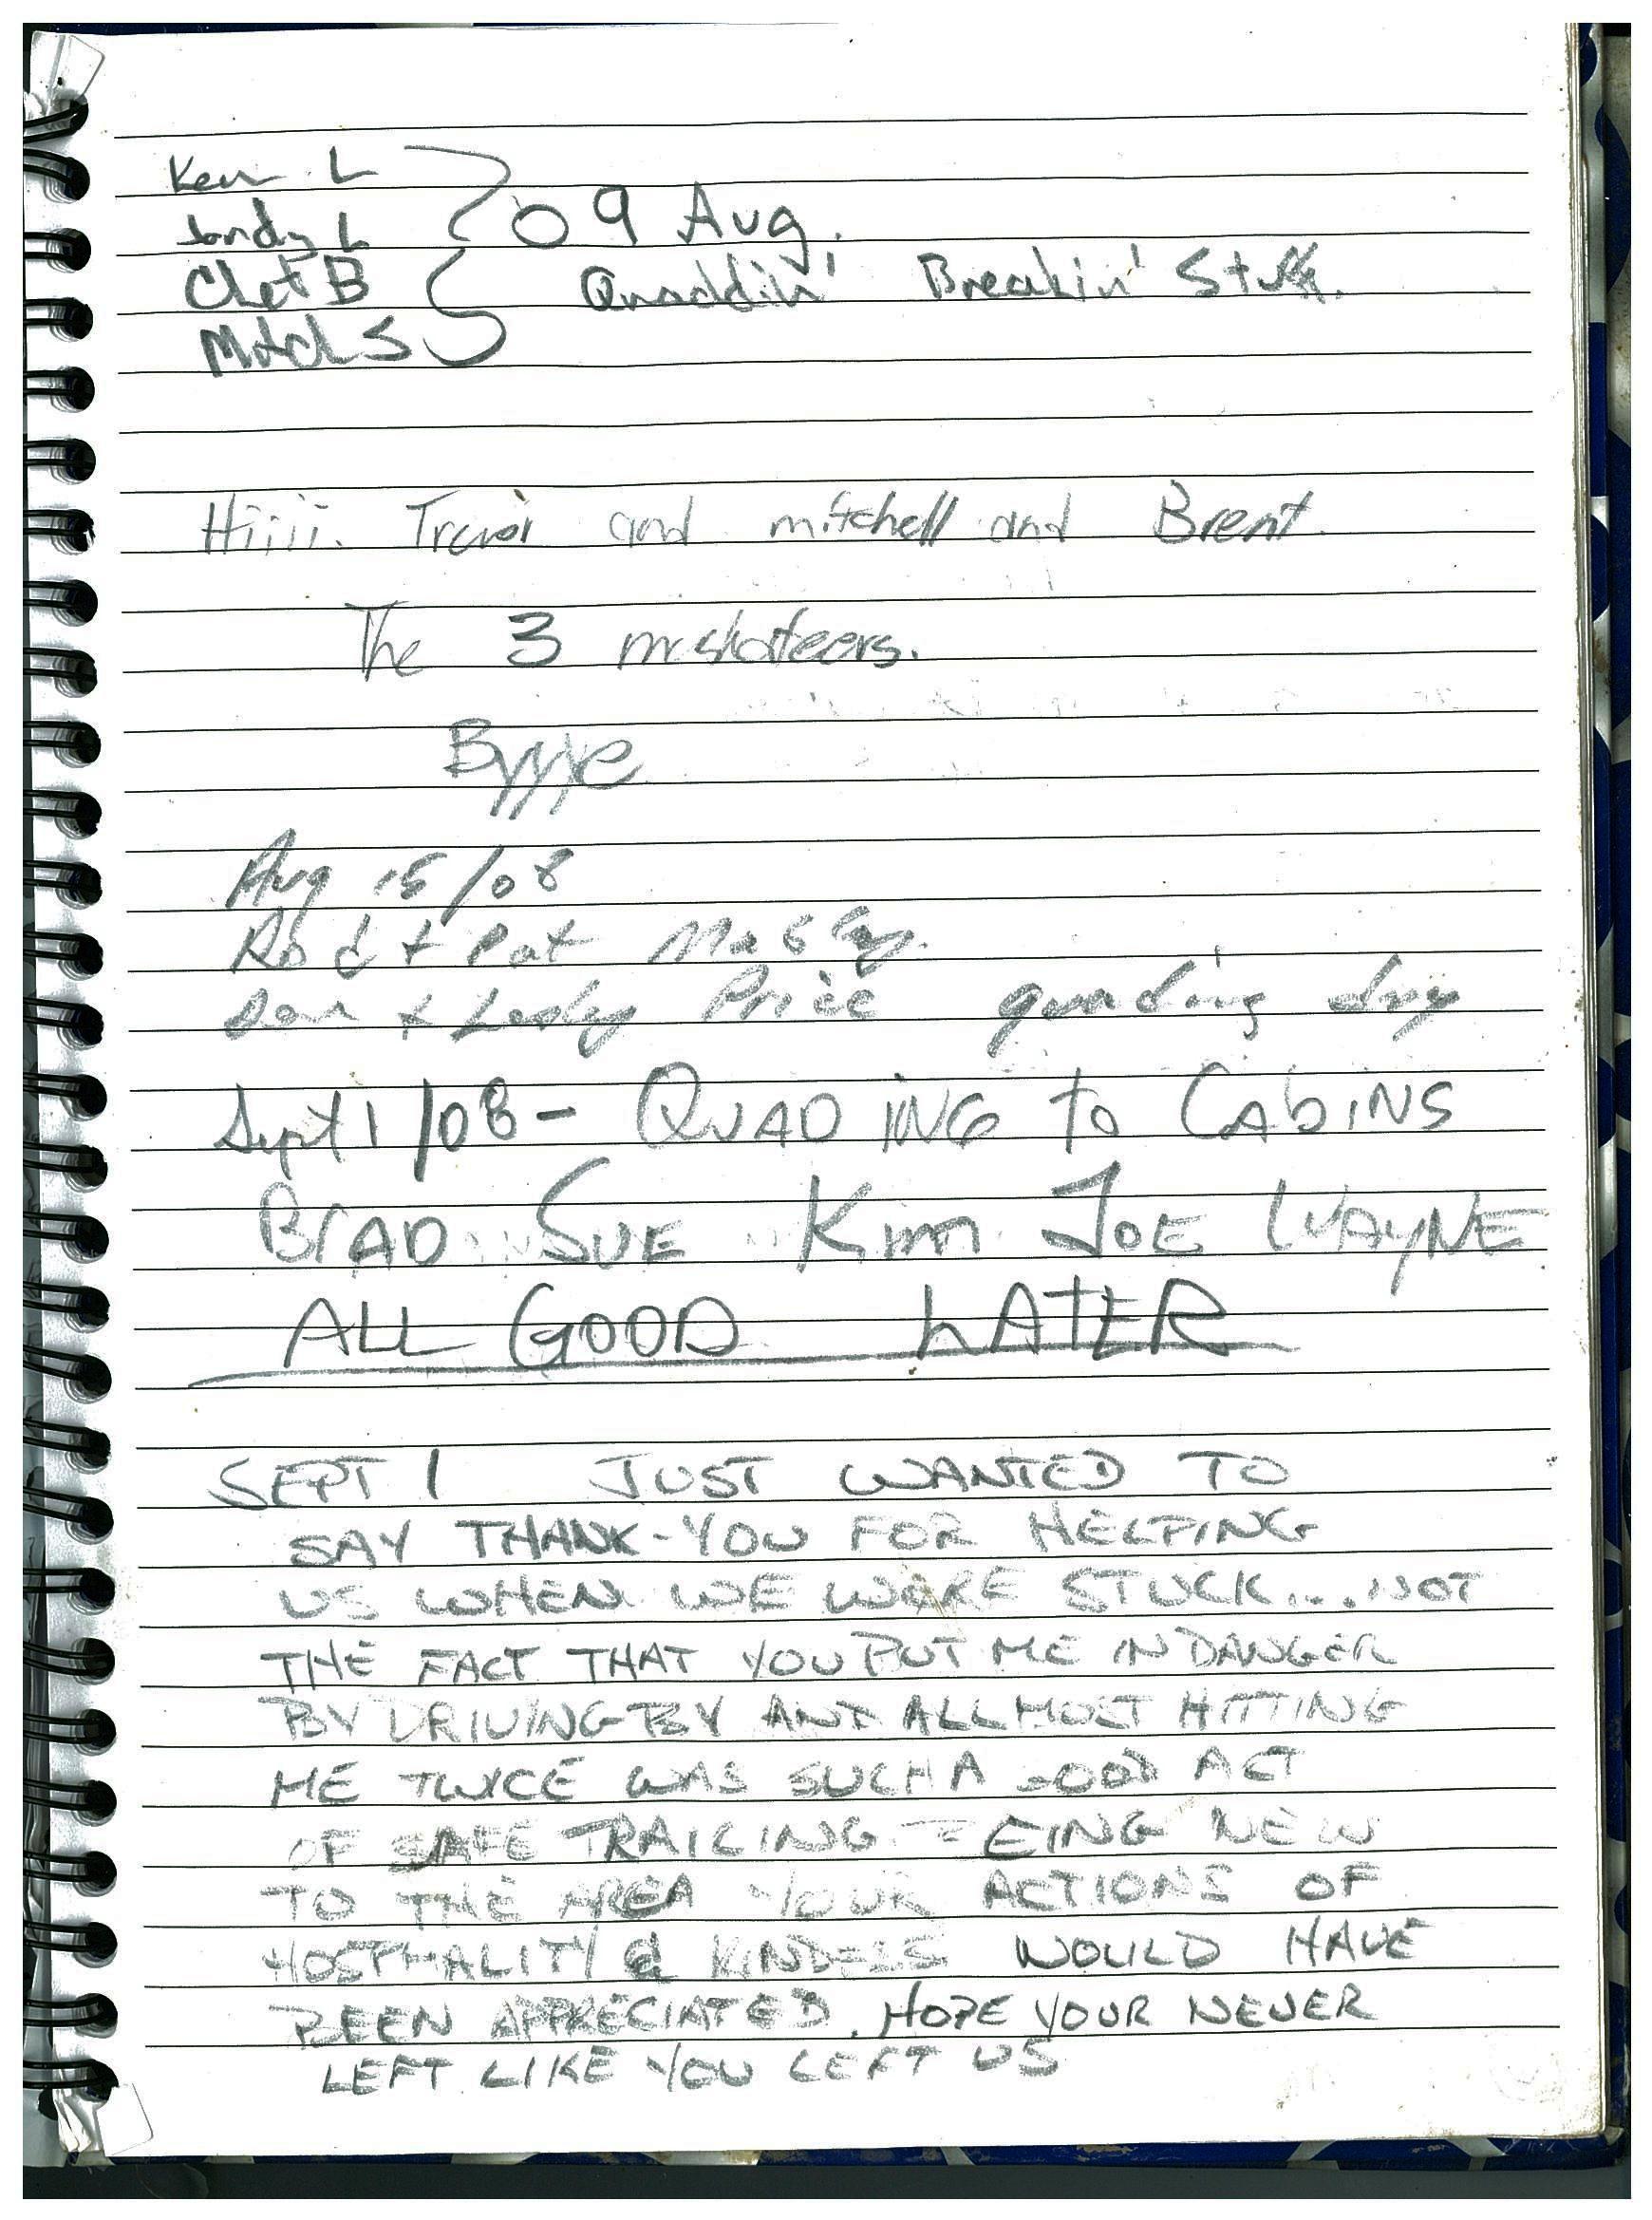 Ken L
Jandy L
09 Aug.
Chet B
Quaddin' Breakin' Stuff.
Mitch S
Hiiii. Trevor and mitchell and Brent.
The 3 muskateers.
Byyye
Aug 15/08
Rod + Pat
Dan + Lesley Price quading day
Sept 1/08 - QUADING to CAbiNS
BrAD SUE Kim JOE WAyNE
ALL GOOD LATER
SEPT 1 JUST WANTED TO
SAY THANK-YOU FOR HELPING
US WHEN WE WERE STUCK...NOT
THE FACT THAT YOU PUT ME IN DANGER
BY DRIVING BY AND ALLMOST HITTING
ME TWICE WAS SUCH A GOOD ACT
OF SAFE TRAILING BEING NEW
TO THE AREA YOUR ACTIONS OF
& WOULD HAVE
BEEN APPRECIATED. HOPE YOUR NEVER
LEFT LIKE YOU LEFT US